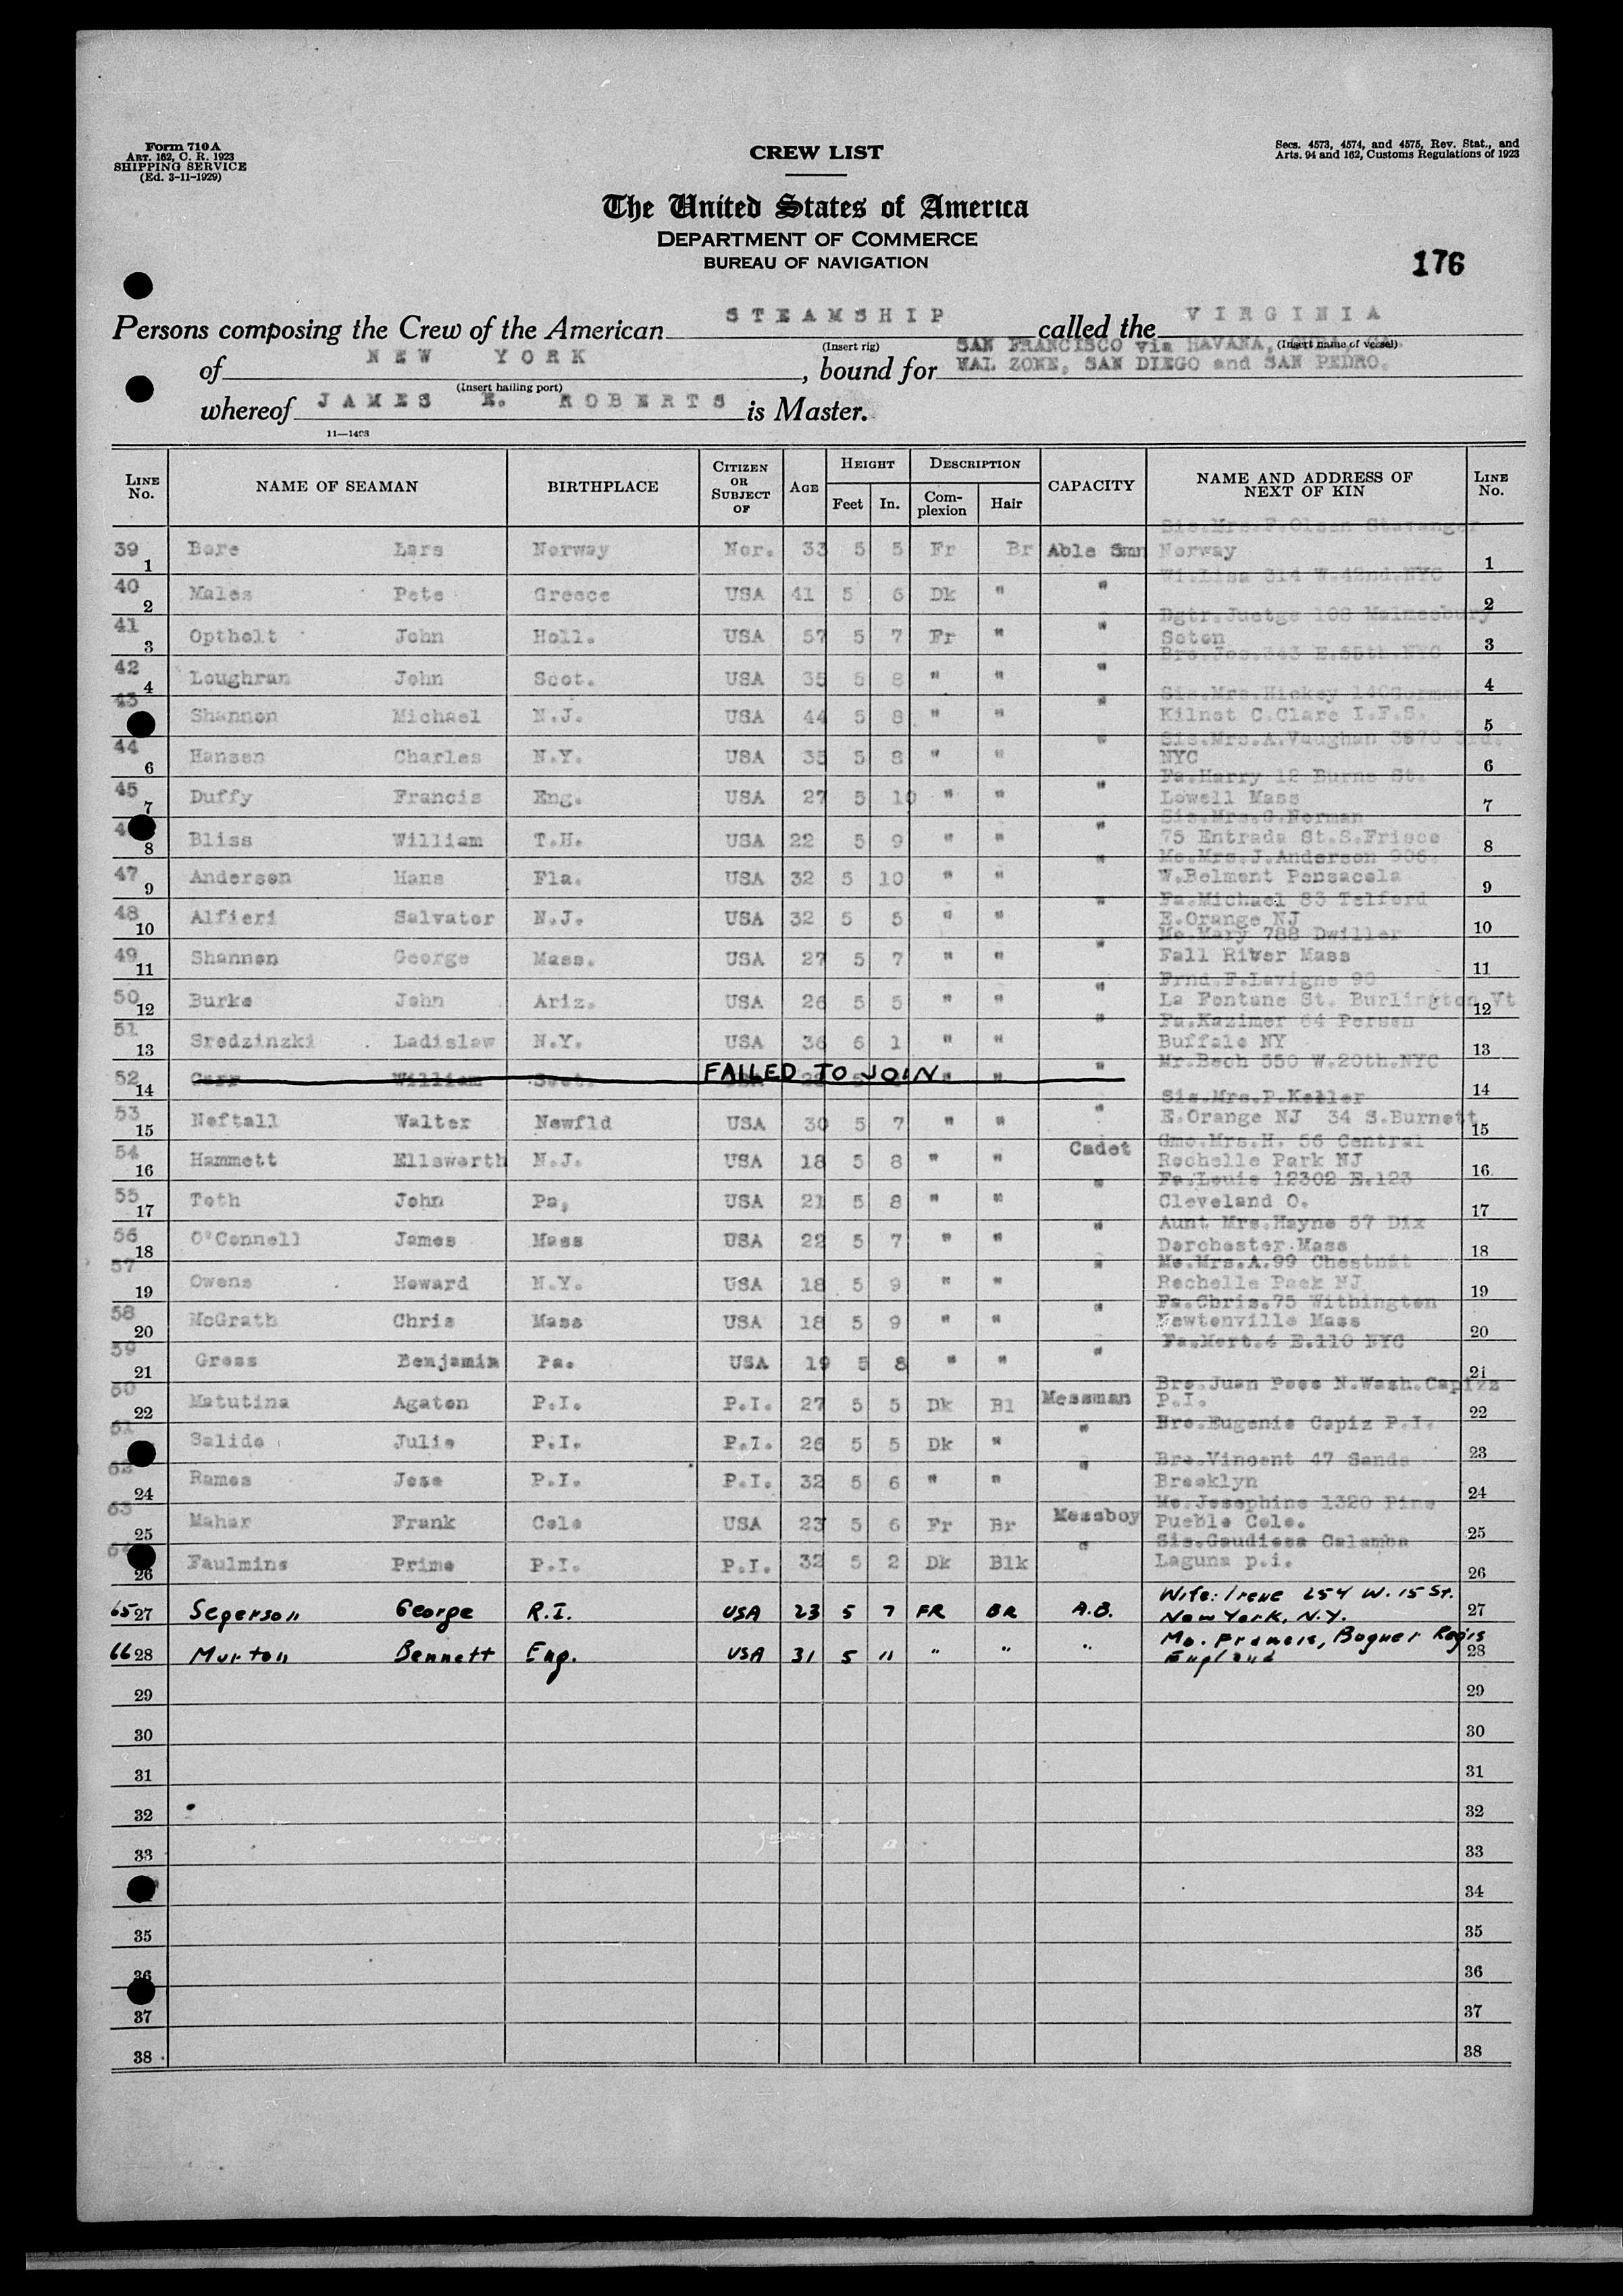 Form 710A
ART. 162, C. R. 1923
SHIPPING SERVICE
(Ed. 3-11-1929)
CREW LIST
Secs. 4573, 4574, and 4575, Rev. Stat., and
Arts. 94 and 162, Customs Regulations of 1923
The United States of America
DEPARTMENT OF COMMERCE
BUREAU OF NAVIGATION
176
Persons composing the Crew of the American STEAMSHIP called the VIRGINIA
(Insert rig) (Insert name of vessel)
SAN FRANCISCO via HAVANA,
of NEW YORK, bound for NAL ZONE, SAN DIEGO and SAN PEDRO.
(Insert hailing port)
whereof JAMES E. ROBERTS is Master.
11—1403
LINE No. NAME OF SEAMAN BIRTHPLACE CITIZEN OR SUBJECT OF AGE HEIGHT Feet In. DESCRIPTION Complexion Hair CAPACITY NAME AND ADDRESS OF NEXT OF KIN LINE No.
Sis.Mrs.F.Olsen Stavanger
39 1 Bore Lars Norway Nor. 33 5 5 Fr Br Able Smn Norway 1
Wi.Lisa 314 W.42nd.NYC
40 2 Males Pete Greece USA 41 5 6 Dk " " 2
Dgtr.Juetge 108 Malmesbury
41 3 Optholt John Holl. USA 57 5 7 Fr " " Soton 3
Bro.Jos.343 E.55th.NYC
42 4 Loughran John Scot. USA 35 5 8 " " " 4
Sis.Mrs.Hickey
43 Shannon Michael N.J. USA 44 5 8 " " " Kilnet C.Clare I.F.S. 5
Sis.Mrs.A.Vaughan 3670 3rd.
44 6 Hansen Charles N.Y. USA 35 5 8 " " " NYC 6
Fa.Harry 12 Burns St.
45 7 Duffy Francis Eng. USA 27 5 10 " " " Lowell Mass 7
Sis.Mrs.G.Norman
4 8 Bliss William T.H. USA 22 5 9 " " " 75 Entrada St.S.Frisco 8
Mo.Mrs.J.Anderson 906.
47 9 Anderson Hans Fla. USA 32 5 10 " " " W.Belmont Pensacola 9
Fa.Michael 83 Telford
48 10 Alfieri Salvator N.J. USA 32 5 5 " " " E.Orange NJ 10
Mo.Mary 788 Dwiller
49 11 Shannon George Mass. USA 27 5 7 " " " Fall River Mass 11
Frnd.F.Lavigne 90
50 12 Burke John Ariz. USA 26 5 5 " " " La Fontane St. Burlington Vt 12
Fa.Kazimer 64 Person
51 13 Sredzinzki Ladislaw N.Y. USA 36 6 1 " " " Buffalo NY 13
Mr.Bech 550 W.20th.NYC
52 14 Carr William Scot. FAILED TO JOIN " " " 14
Sis.Mrs.P.Keller
53 15 Neftall Walter Newfld USA 30 5 7 " " " E.Orange NJ 34 S.Burnett 15
Gmo.Mrs.H. 56 Central
54 16 Hammett Ellsworth N.J. USA 18 5 8 " " Cadet Rochelle Park NJ 16
Fa.Louis 12302 E.123
55 17 Toth John Pa, USA 21 5 8 " " " Cleveland O. 17
Aunt Mrs.Hayne 57 Dix
56 18 O'Connell James Mass USA 22 5 7 " " " Dorchester.Mass 18
Mo.Mrs.A.99 Chestnut
57 19 Owens Howard N.Y. USA 18 5 9 " " " Rochelle Paek NJ 19
Fa.Chris.75 Withington
58 20 McGrath Chris Mass USA 18 5 9 " " " Newtonville Mass 20
Fa.Mort.4 E.110 NYC
59 21 Gross Benjamin Pa. USA 19 5 8 " " " 21
Bro.Juan Poos N.Wash.Capizz
60 22 Matutina Agaton P.I. P.I. 27 5 5 Dk Bl Messman P.I. 22
Bro.Eugenio Capiz P.I.
61 Salido Julio P.I. P.I. 26 5 5 Dk " " 23
Bro.Vincent 47 Sands
62 24 Ramos Jose P.I. P.I. 32 5 6 " " " Brooklyn 24
Mo.Josephine 1320 Pine
63 25 Mahar Frank Colo USA 23 5 6 Fr Br Messboy Pueblo Colo. 25
Sis.Gaudiosa Calamba
64 26 Faulmino Primo P.I. P.I. 32 5 2 Dk Blk " Laguna p.i. 26
Wife: Irene 254 W. 15 St.
65 27 Segerson George R.I. USA 23 5 7 FR BR A.B. New York, N.Y. 27
Mo. Francis, Bogner Regis
66 28 Murton Bennett Eng. USA 31 5 11 " " " England 28
29 29
30 30
31 31
32 32
33 33
34
35 35
36 36
37 37
38 38